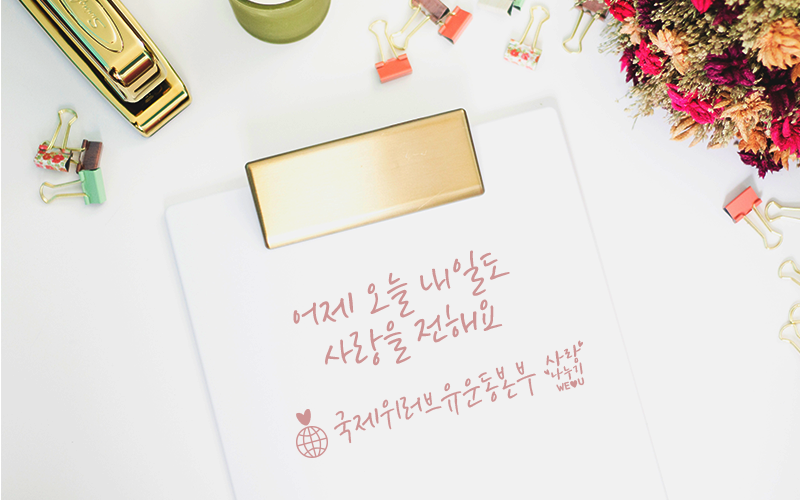 어제 오늘 내일도
사랑을 전해요
국제위러브유운동본부
사랑
나누기
WE♥U